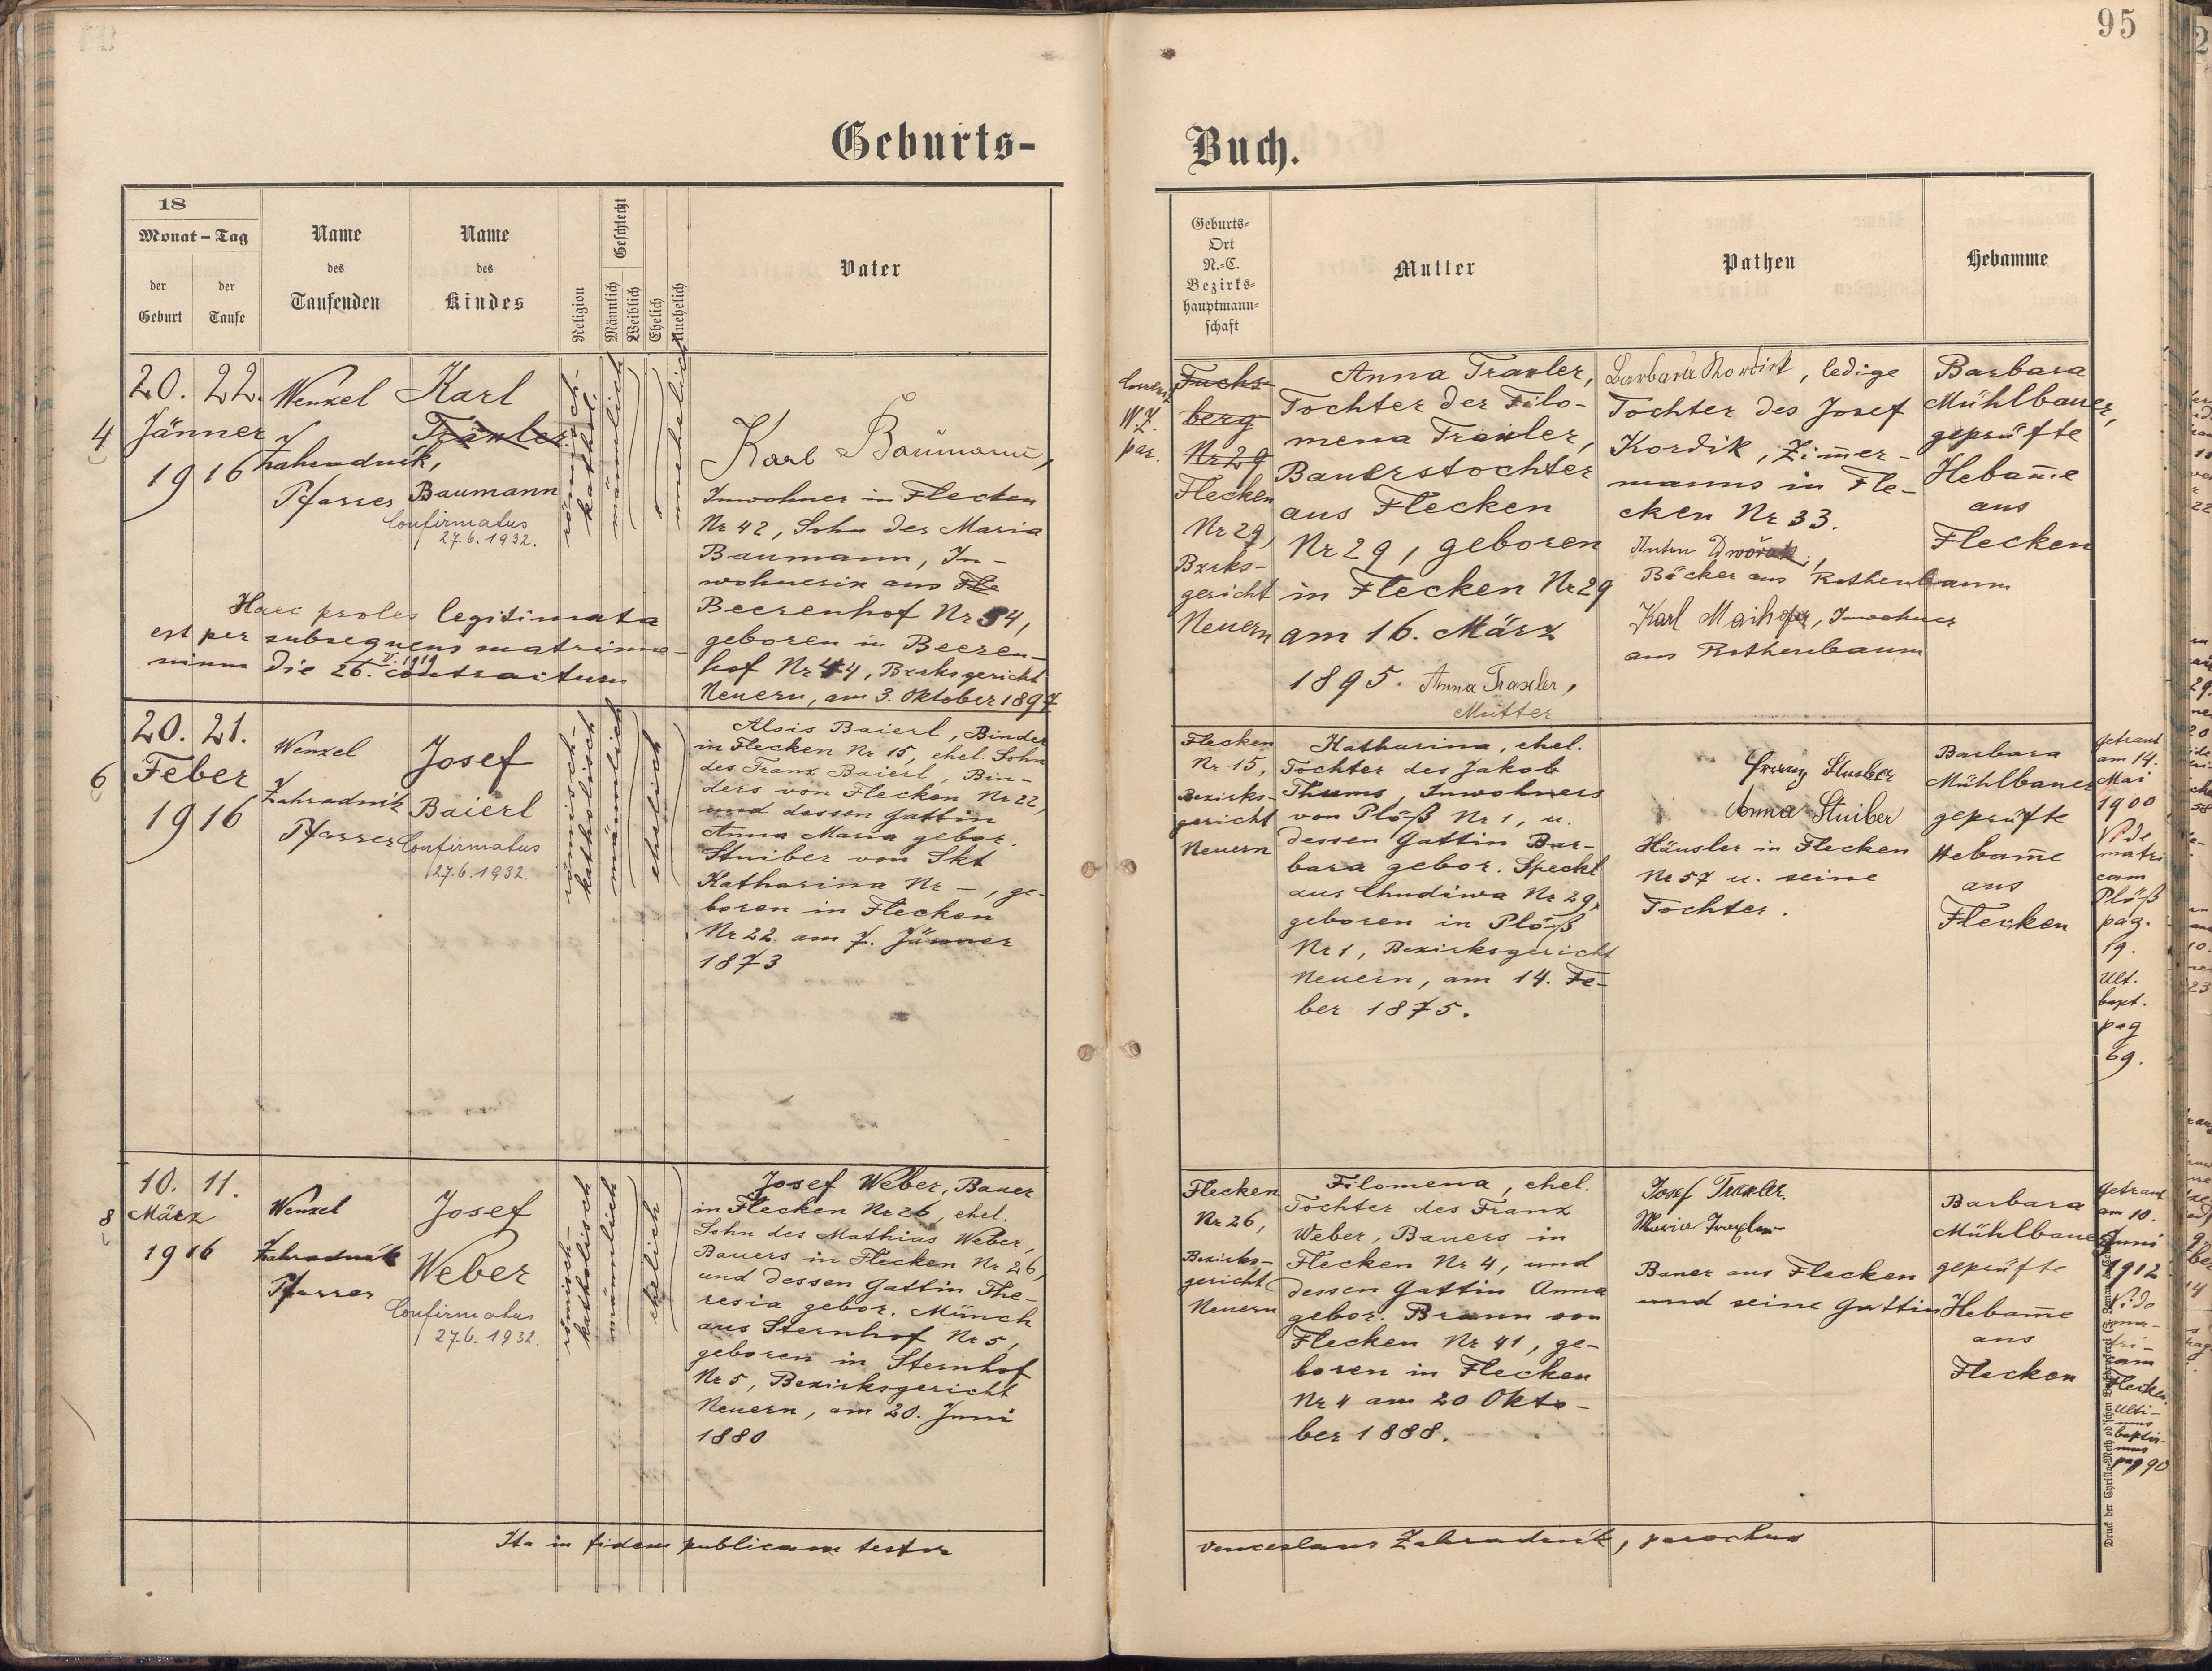 95
Geburts-
Buch.
18
Monat-Tag
der Geburt
der Taufe
Name des Taufenden
Name des Kindes
Religion
Geschlecht
Männlich
Weiblich
Ehelich
Unehelich
Vater
Geburts-
Ort
N.-C.
Bezirks-
hauptmann-
schaft
Mutter
Pathen
Hebamme
4
20. 22.
Jänner
1916
Wenzel
Zahradnik,
Pfarrer
Karl
Traxler
Baumann
Confirmatus
27.6.1932.
römisch-
kathol.
männlich
unehelich
Karl Baumann,
Inwohner in Flecken
Nr 42, Sohn der Maria
Baumann, In-
wohnerin aus Fle
Beerenhof Nr 34,
geboren in Beeren-
hof Nr 44, Bzrksgericht
Neuern, am 3. Oktober 1897
Haec proles legitimata
est per subsequens matrimo-
nium die 26. II. 1919 contractum
W. Z.
par.
Fuchs-
berg
Nr 29
Flecken
Nr 29,
Bzrks-
gericht
Neuern
Anna Traxler,
Tochter der Filo-
mena Traxler,
Bauerstochter
aus Flecken
Nr 29, geboren
in Flecken Nr 29
am 16. März
1895. Anna Traxler,
Mutter
Barbara Kordik, ledige
Tochter des Josef
Kordik, Zim̄er-
manns in Fle-
cken Nr 33.
Anton Dwořak,
Bäcker aus Rothenbaum
Karl Maihofer, Inwohner
aus Rothenbaum
Barbara
Mühlbauer,
geprüfte
Hebam̄e
aus
Flecken
6
20. 21.
Feber
1916
Wenzel
Zahradnik
Pfarrer
Josef
Baierl
Confirmatus
27.6.1932.
römisch-
katholisch
männlich
ehelich
Alois Baierl, Binder
in Flecken Nr 15, ehel. Sohn
des Franz Baierl, Bin-
ders von Flecken Nr 22,
und dessen Gattin
Anna Maria gebor.
Stuiber von Skt
Katharina Nr –, ge-
boren in Flecken
Nr 22 am 7. Jänner
1873
Flecken
Nr 15,
Bezirks-
gericht
Neuern
Katharina, ehel.
Tochter des Jakob
Thums, Inwohners
von Plöß Nr 1, u.
dessen Gattin Bar-
bara gebor. Speckl
aus Chudiwa Nr 29,
geboren in Plöß
Nr 1, Bezirksgericht
Neuern, am 14. Fe-
ber 1875.
Franz Stuiber
Anna Stuiber
Häusler in Flecken
Nr 57 u. seine
Tochter.
Barbara
Mühlbauer
geprüfte
Hebam̄e
aus
Flecken
Getraut
am 14.
Mai
1900
Vide
matri
cam
Plöß
pag.
19.
Ult.
bapt.
pag
69.
8
10. 11.
März
1916
Wenzel
Zahradnik
Pfarrer
Josef
Weber
Confirmatus
27.6.1932.
römisch-
katholisch
männlich
ehelich
Josef Weber, Bauer
in Flecken Nr 26, ehel.
Sohn des Mathias Weber,
Bauers in Flecken Nr 26,
und dessen Gattin The-
resia gebor. Münch
aus Sternhof Nr 5,
geboren in Sternhof
Nr 5, Bezirksgericht
Neuern, am 20. Juni
1880
Flecken
Nr 26,
Bezirks-
gericht
Neuern
Filomena, ehel.
Tochter des Franz
Weber, Bauers in
Flecken Nr 4, und
dessen Gattin Anna
gebor. Braun von
Flecken Nr 41, ge-
boren in Flecken
Nr 4 am 20 Okto-
ber 1888.
Josef Traxler.
Maria Traxler
Bauer aus Flecken
und seine Gattin
Barbara
Mühlbauer
geprüfte
Hebam̄e
aus
Flecken
Getraut
am 10.
Juni
1912
Vide
ma-
tri-
cam
Flecken.
Ulti-
mus
baptis-
mus
pag 90
Ita in fidem publicam testor
Venceslaus Zahradník, parochus
Druck der Cyrillo-Method'schen Buchdruckerei